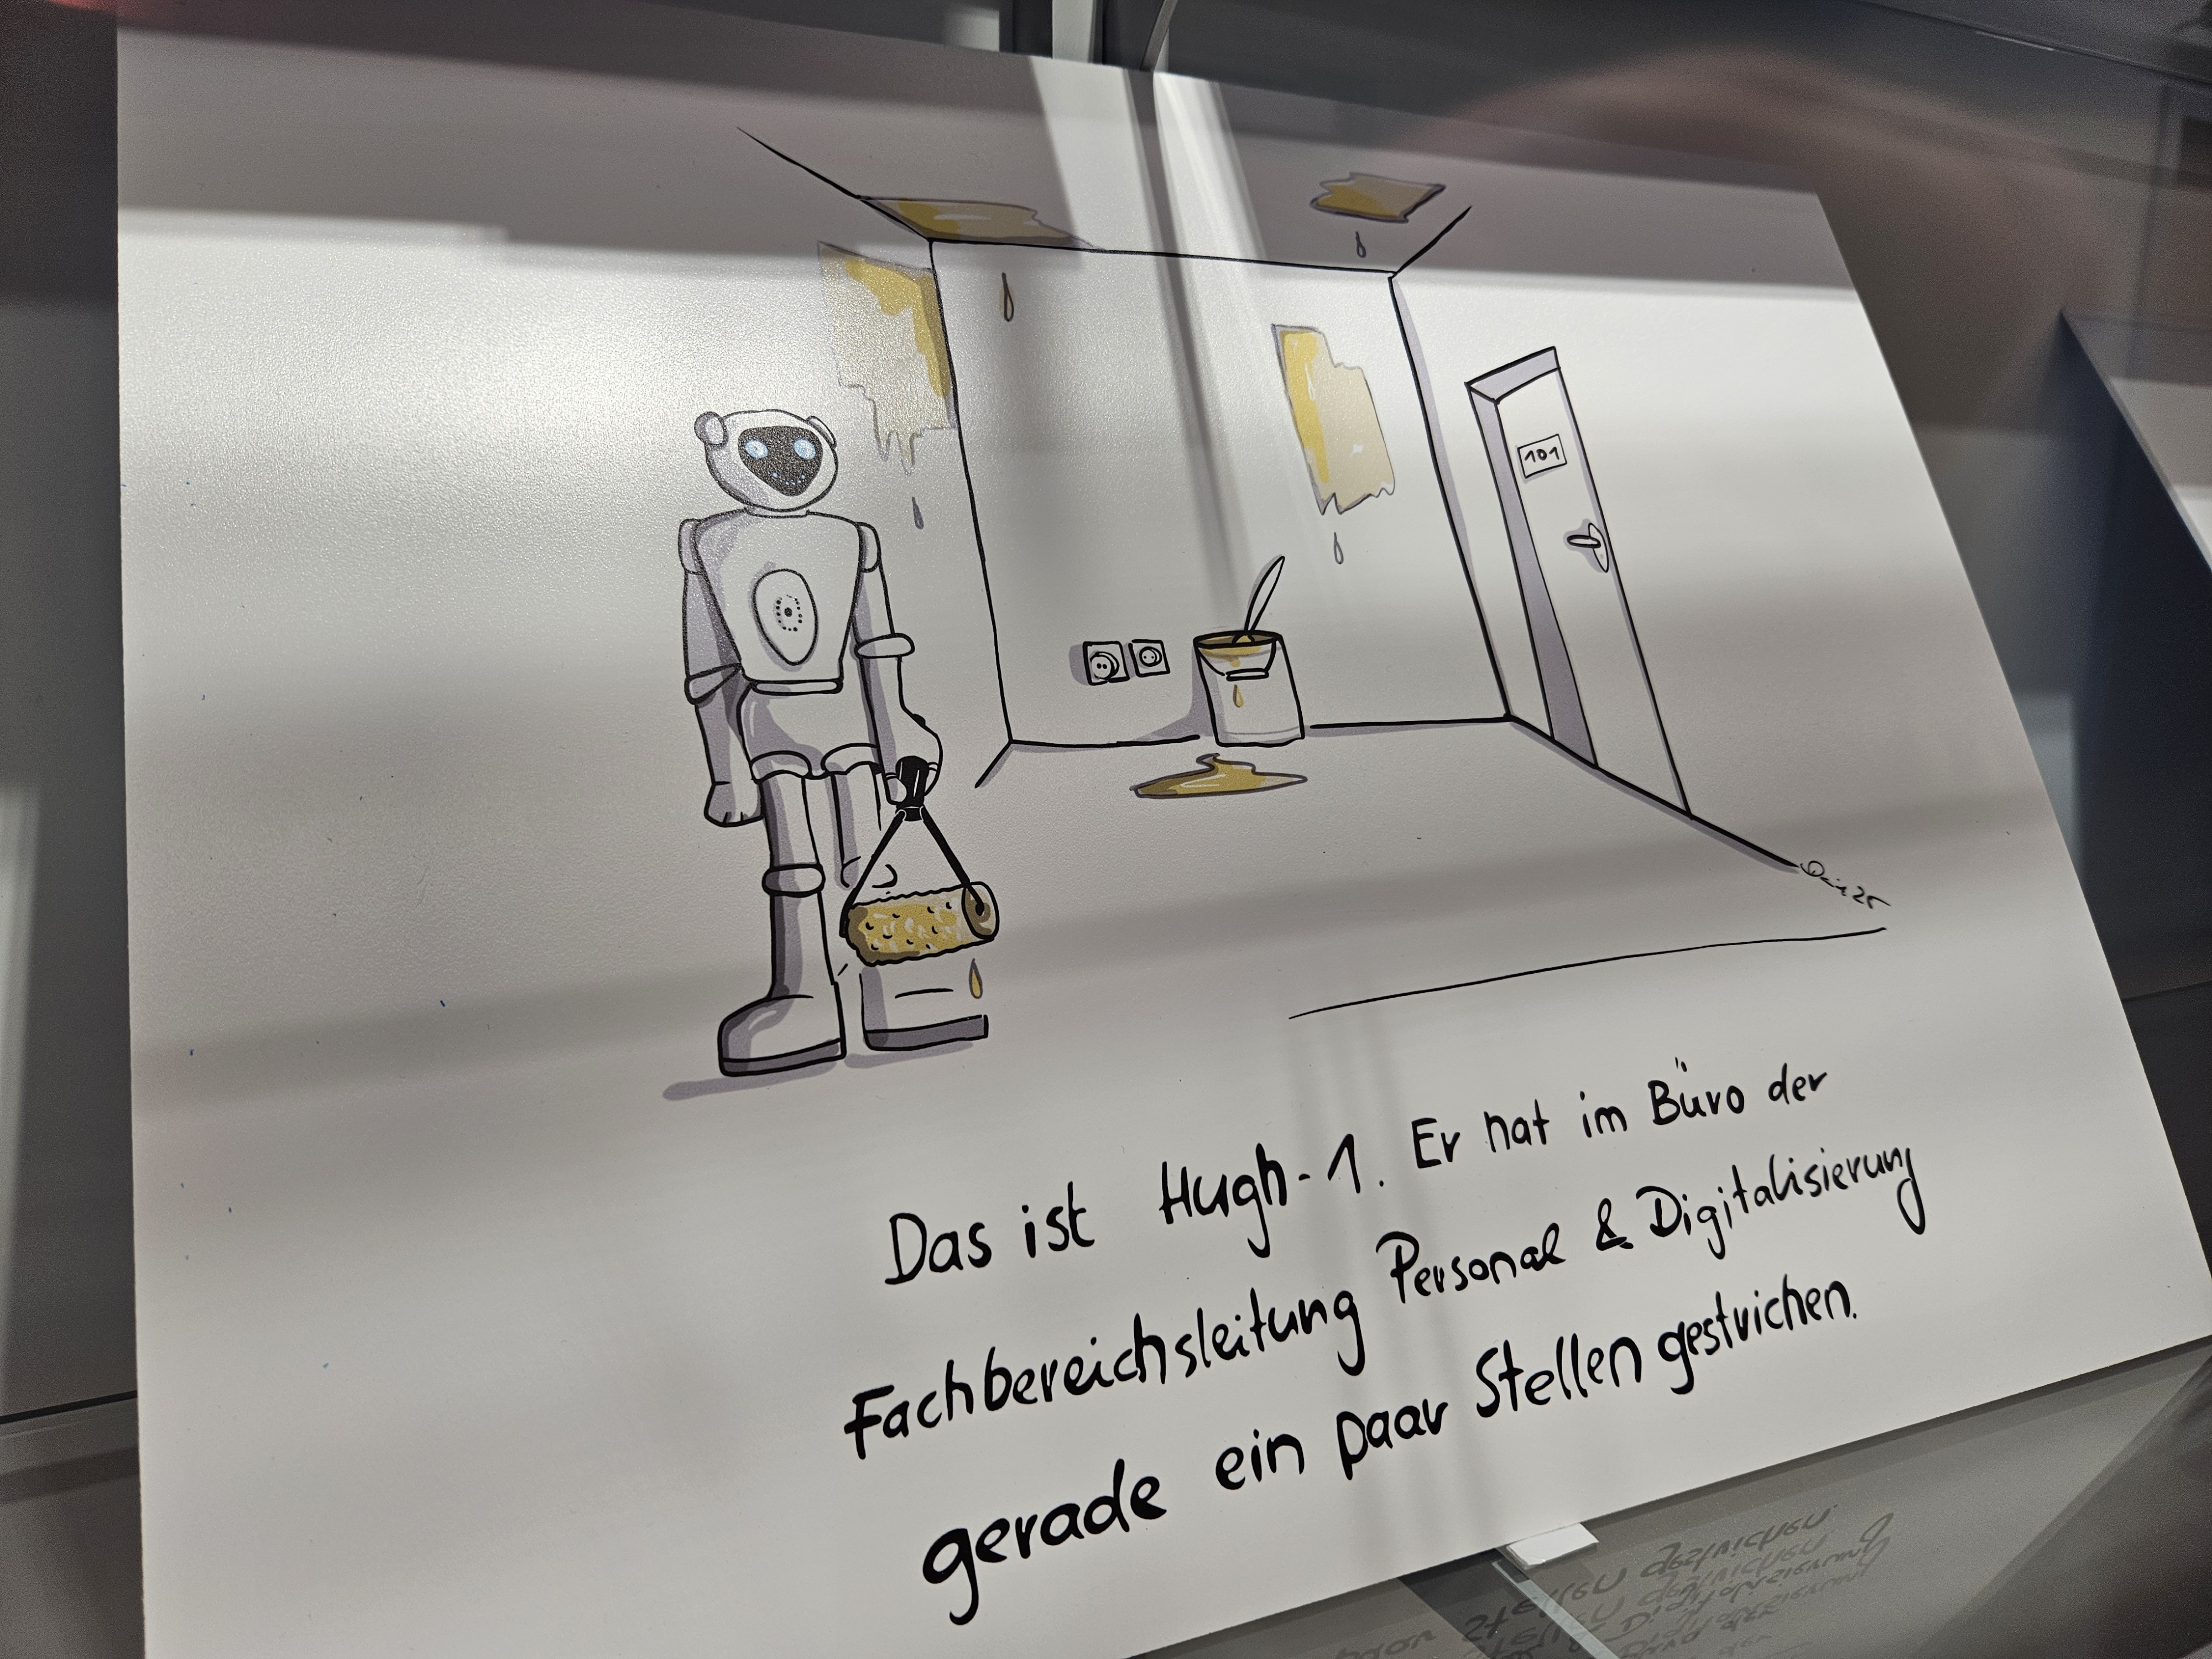 101
Das ist Hugh-1. Er hat im Büro der
Fachbereichsleitung Personal & Digitalisierung
gerade ein paar Stellen gestrichen.